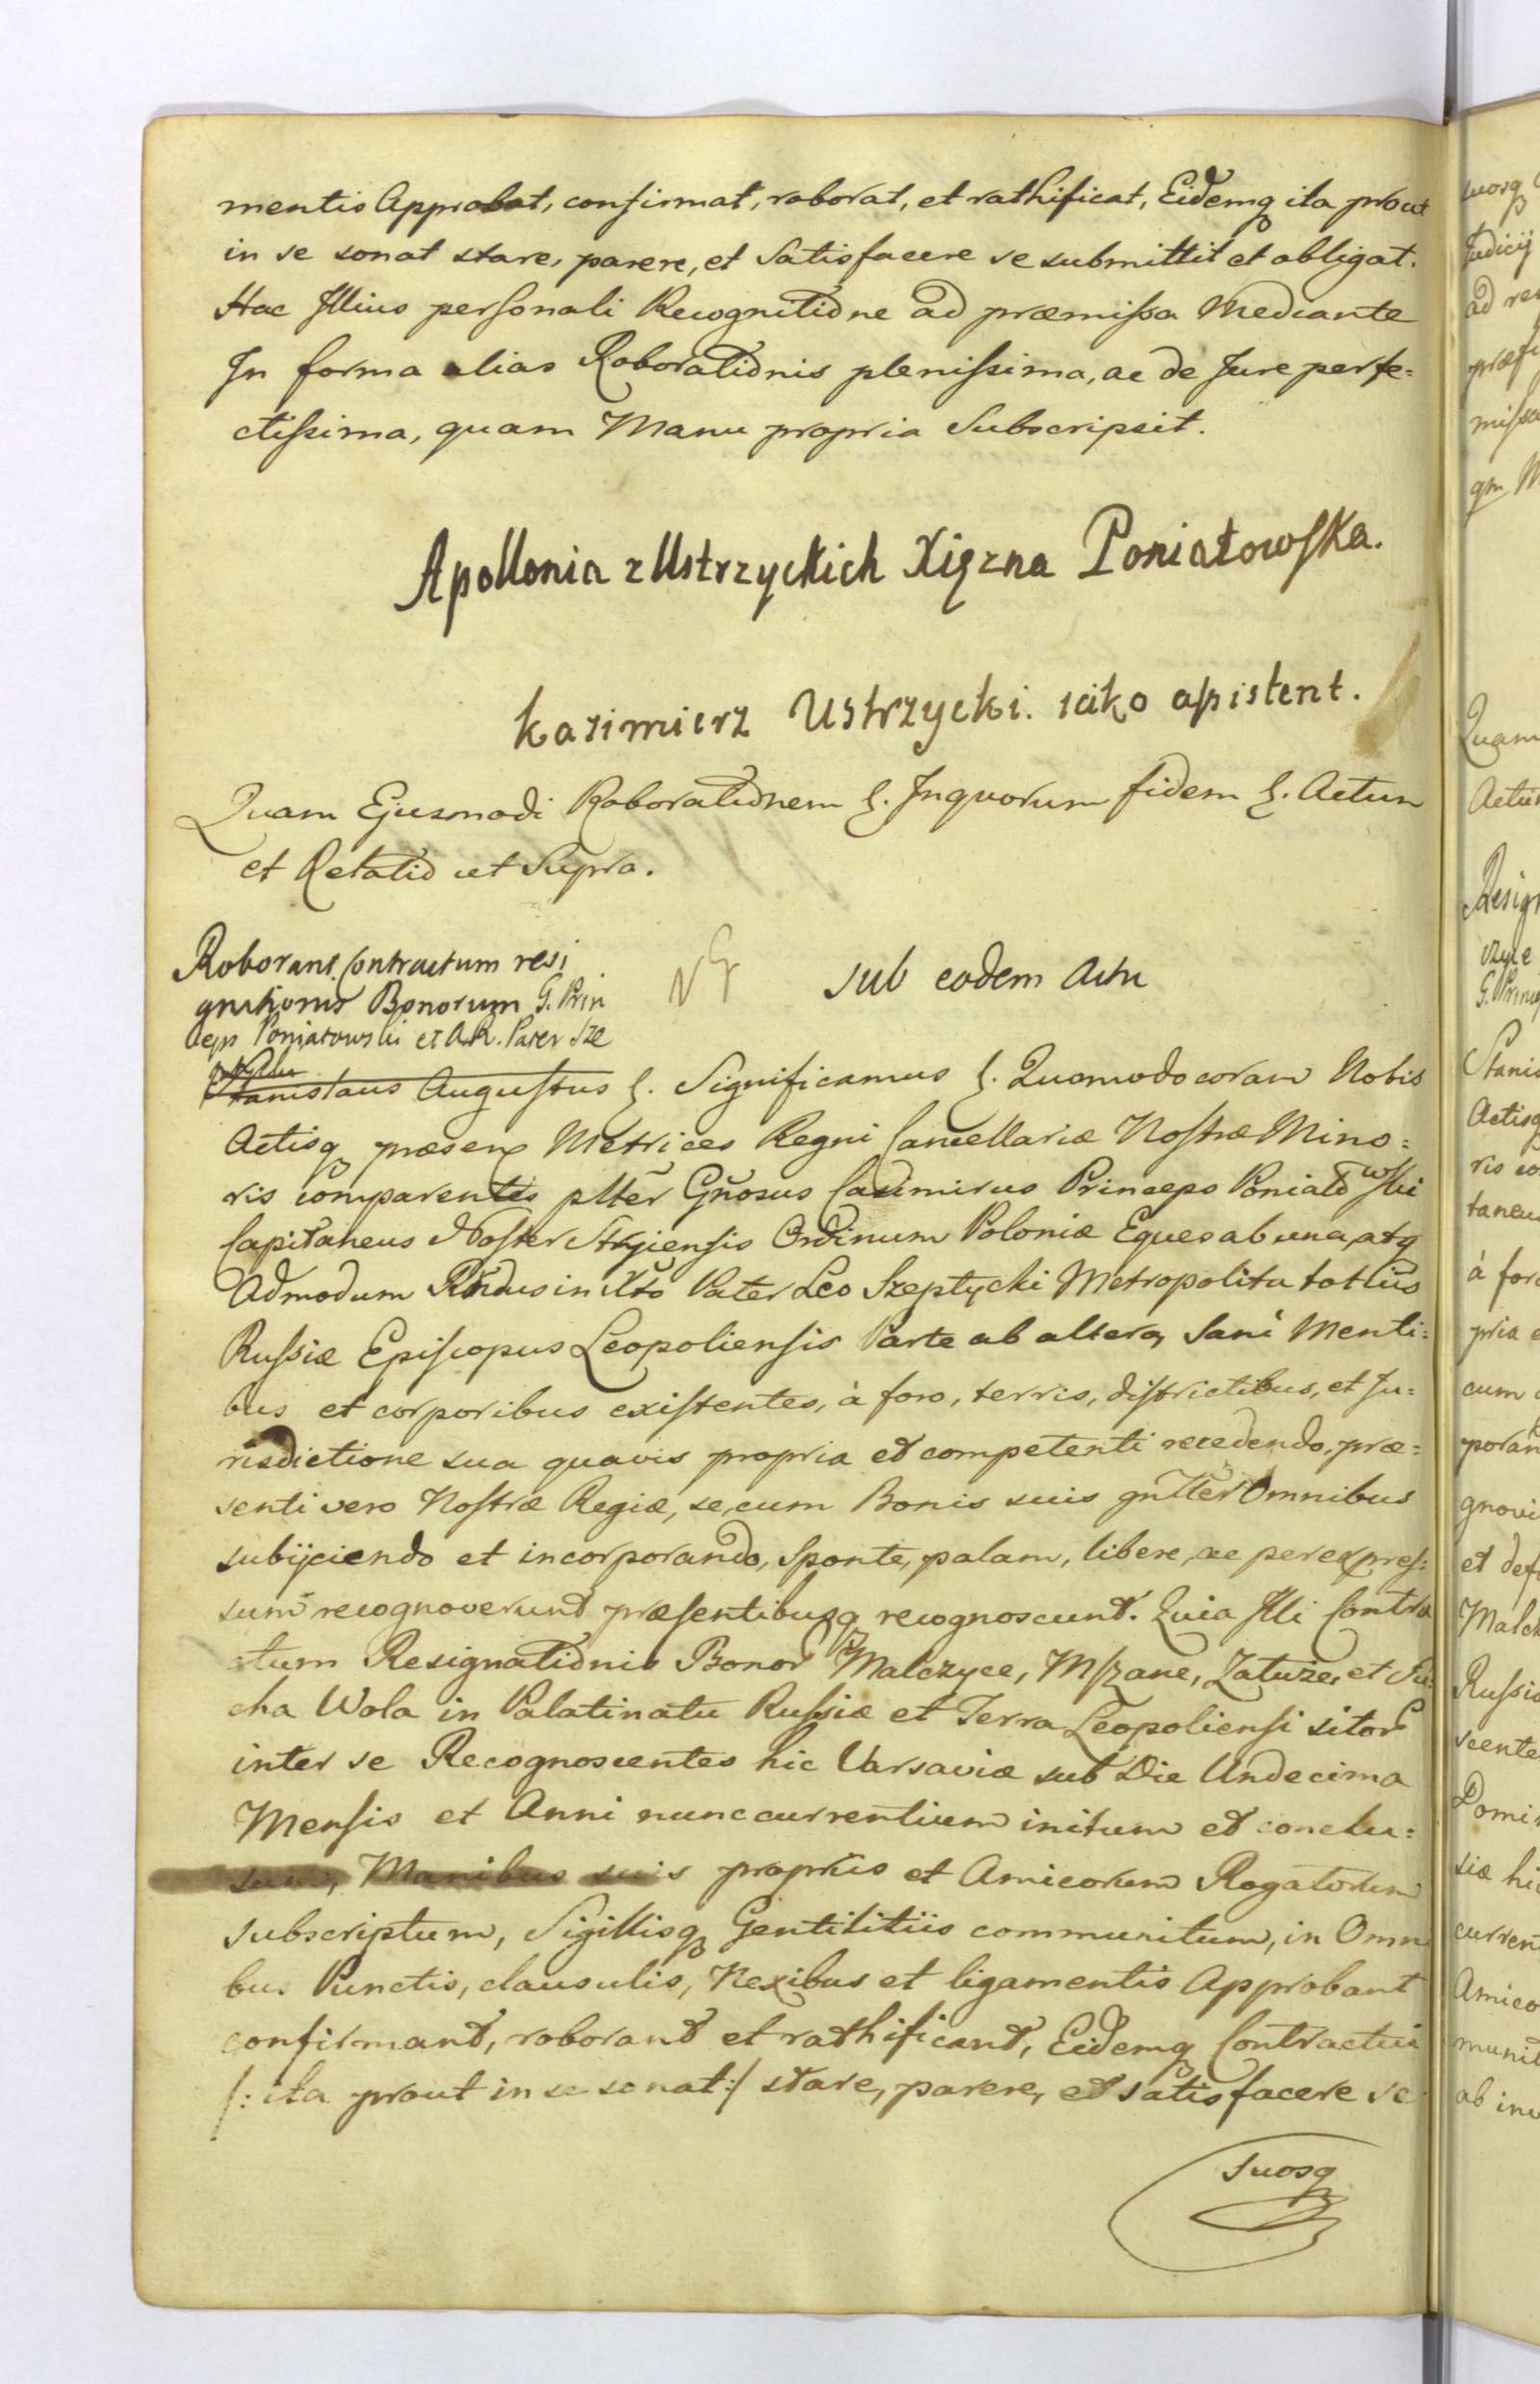 mentis Approbat, confirmat, roborat, et rathificat, Eidemq ita prout
in se sonat stare, parere, et Satisfacere se submittit et obligat.
Hac Illius personali Recognitione ad præmissa Mediante
In forma alias Roborationis plenissima, ac de Jure perfe=
ctissima, quam Manu propria Subscripsit.
Apollonia z Ustrzyckich Xięzna Poniatowska.
Kazimierz Ustrzycki. iako assistent.
Quam Ejusmodi Roborationem &. Inquorum fidem &. Actum
et Relatio ut Supra.
Roborant Contractum resi
gnationis Bonorum G. Prin
ceps Poniatowski et A.R. Pater Sze
ptycki
sub eodem Actu
Stanislaus Augustus &. Significamus &. Quomodo coram Nobis
Actisq præsens Metrices Regni Cancellariæ Nostræ Mino=
ris comparentes plter Gnosus Casimirus Princeps Poniatowski
Capitaneus Noster Stryiensis Ordinum Poloniæ Eques ab una, atq
Admodum Rndus in Xto Pater Leo Szeptycki Metropolita totius
Russiæ Episcopus Leopoliensis Parte ab altera, Sani Menti=
bus et corporibus existentes, à foro, terris, districtibus, et Ju=
risdictione sua quavis propria et competenti recedendo, præ=
senti vero Nostræ Regiæ, se, cum Bonis suis gnlter Omnibus
subijciendo et incorporando, Sponte, palam, libere, ac per expres=
sum recognoverunt præsentibusq recognoscunt. Quia Illi Contra
ctum Resignationis Bonor Malczyce, Mszane, Zatuże, et Su=
cha Wola in Palatinatu Russiæ et Terra Leopoliensi sitor
inter se Recognoscentes hic Varsaviæ sub Die Undecima
Mensis et Anni nunc currentium initum et conclu=
sum, Manibus suis propriis et Amicorum Rogatorum
subscriptum, Sigillisq Gentilitiis communitum, in Omni
bus Punctis, clausulis, Nexibus et ligamentis Approbant
confirmant, roborant et rathificant, Eidemq Contractui
/: ita prout in se sonat :/ stare, parere, et satisfacere se
suosq